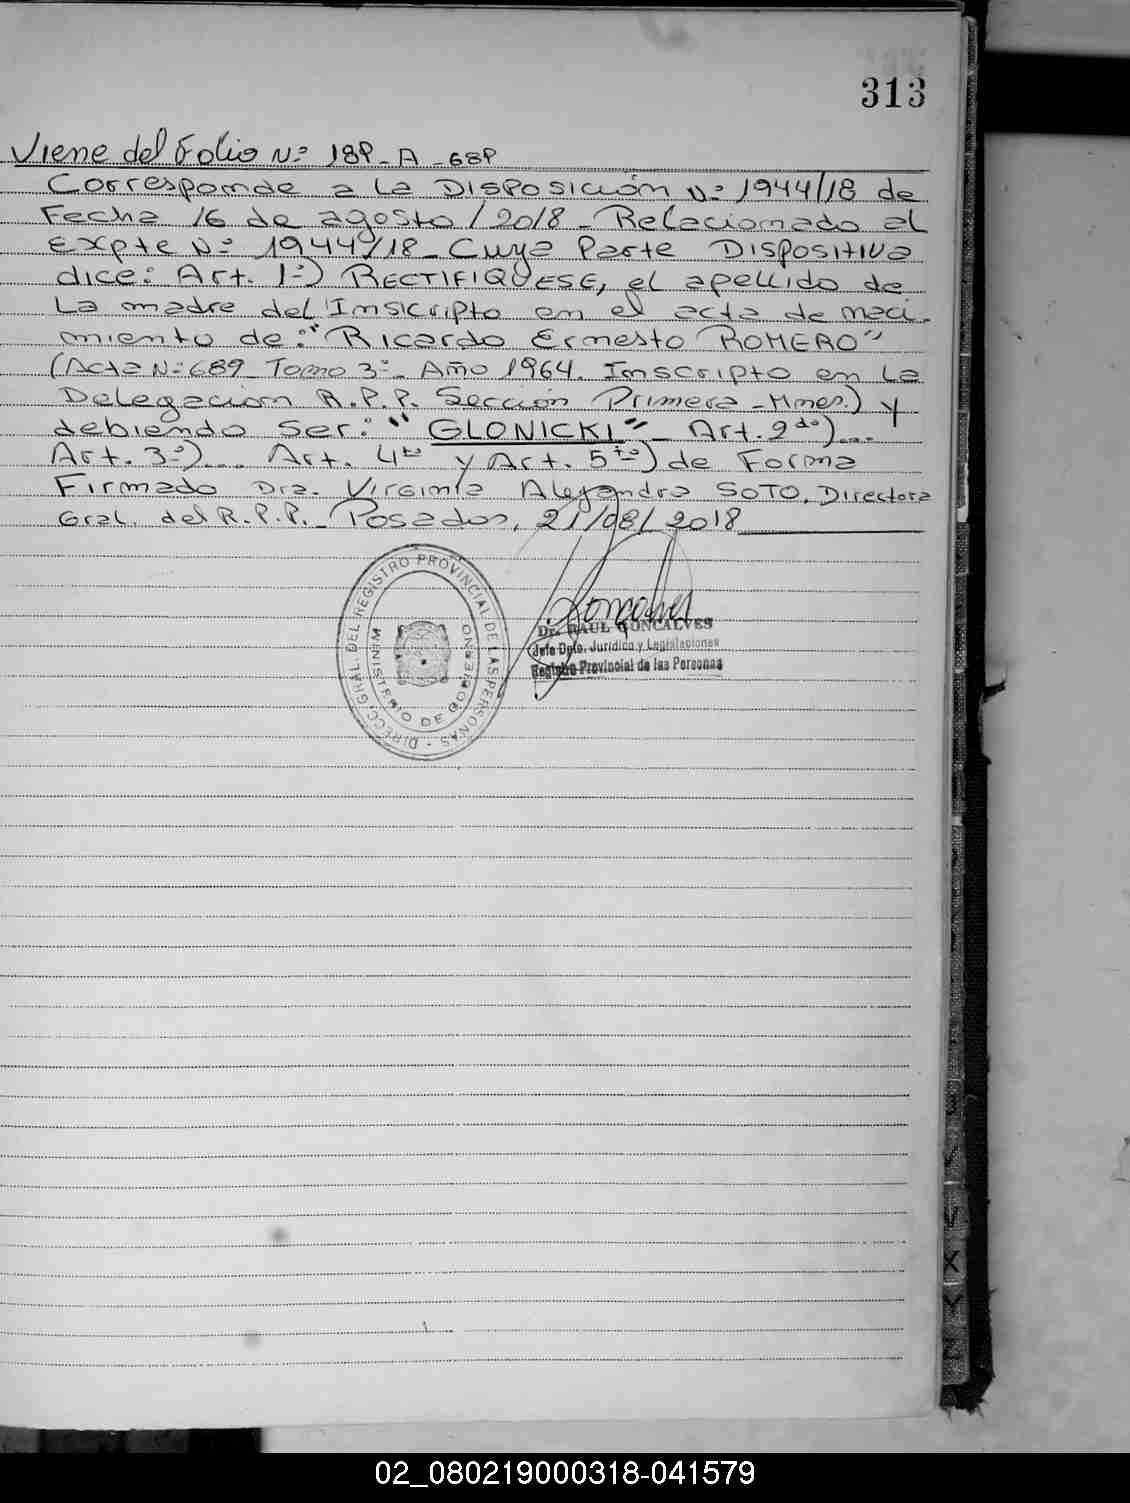 313
Viene del Folio Nº 189-A-689
Corresponde a la DISPOSICIÓN Nº 1944/18 de
Fecha 16 de agosto/2018 - Relacionado al
Expte Nº 1944/18 - Cuya Parte DISPOSITIVA
dice: Art. 1º) RECTIFIQUESE, el apellido de
la madre del Inscripto en el acta de naci-
miento de: "Ricardo Ernesto ROMERO"
(Acta Nº 689 - Tomo 3º - Año 1964. Inscripto en la
Delegación R.P.P. Sección Primera - Mnes.) y
debiendo ser: "GLONICKI" - Art. 2do)...
Art. 3º)... Art. 4to y Art. 5to) de Forma
Firmado Dra. Virginia Alejandra SOTO, Directora
Gral. del R.P.P. - Posadas, 21/08/2018
DIRECC. GRAL. DEL REGISTRO PROVINCIAL DE LAS PERSONAS -
MINISTERIO DE GOBIERNO
Dr. RAUL GONCALVES
Jefe Dpto. Jurídico y Legislaciones
Registro Provincial de las Personas
V
V
X
Y
Z
02_080219000318-041579